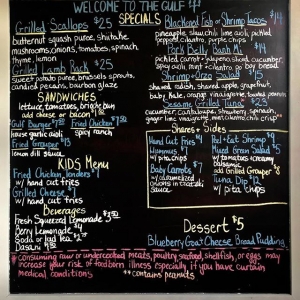 WELCOME TO THE GULF
SPECIALS
Grilled Scallops $25
butternut squash puree, shiitake
mushrooms, onions, tomatoes, spinach
thyme, lemon
Grilled Lamb Rack $25
sweet potato puree, brussels sprouts,
candied pecans, bourbon glaze
SANDWICHES
lettuce, tomatoes, bun
add cheese or bacon $1
Gulf Burger Fried Chicken
house garlic aioli spicy ranch
Fried Grouper $13
lemon dill sauce
KIDS Menu
Fried Chicken Tenders
w/ hand cut fries
Grilled Cheese
w/ hand cut fries
Beverages
Fresh Squeezed Lemonade
Berry Lemonade $4
Soda or Iced Tea
Dasani
Blackened Fish or Shrimp Tacos $14
pineapple slaw, chili lime aioli, pickled
peppers, cilantro
Pork Belly Banh Mi $14
pickled carrot + jalapeno, sliced cucumber,
aioli, mint + cilantro
Shrimp + Orzo Salad $15
shaved radish, shaved
baby kale, orange vinaigrette
Sesame Grilled Tuna $23
cucumber, cantaloupe, strawberry, spinach,
ginger lime vinaigrette, mint
Shares + Sides
Hand Cut Fries $4
Hummus
w/ pita chips
Baby Carrots $7
w/ caramelized
onions in
sauce
Fried Shrimp
Mixed Green Salad $5
w/ tomatoes, creamy
balsamic
add Grilled Grouper $8
Tuna Dip
w/ pita chips
Dessert $5
Blueberry Goat Cheese Bread Pudding
* consuming raw or undercooked meats, poultry, seafood, shellfish, or eggs may
increase your risk of foodborn illness especially if you have certain
medical conditions **contains peanuts